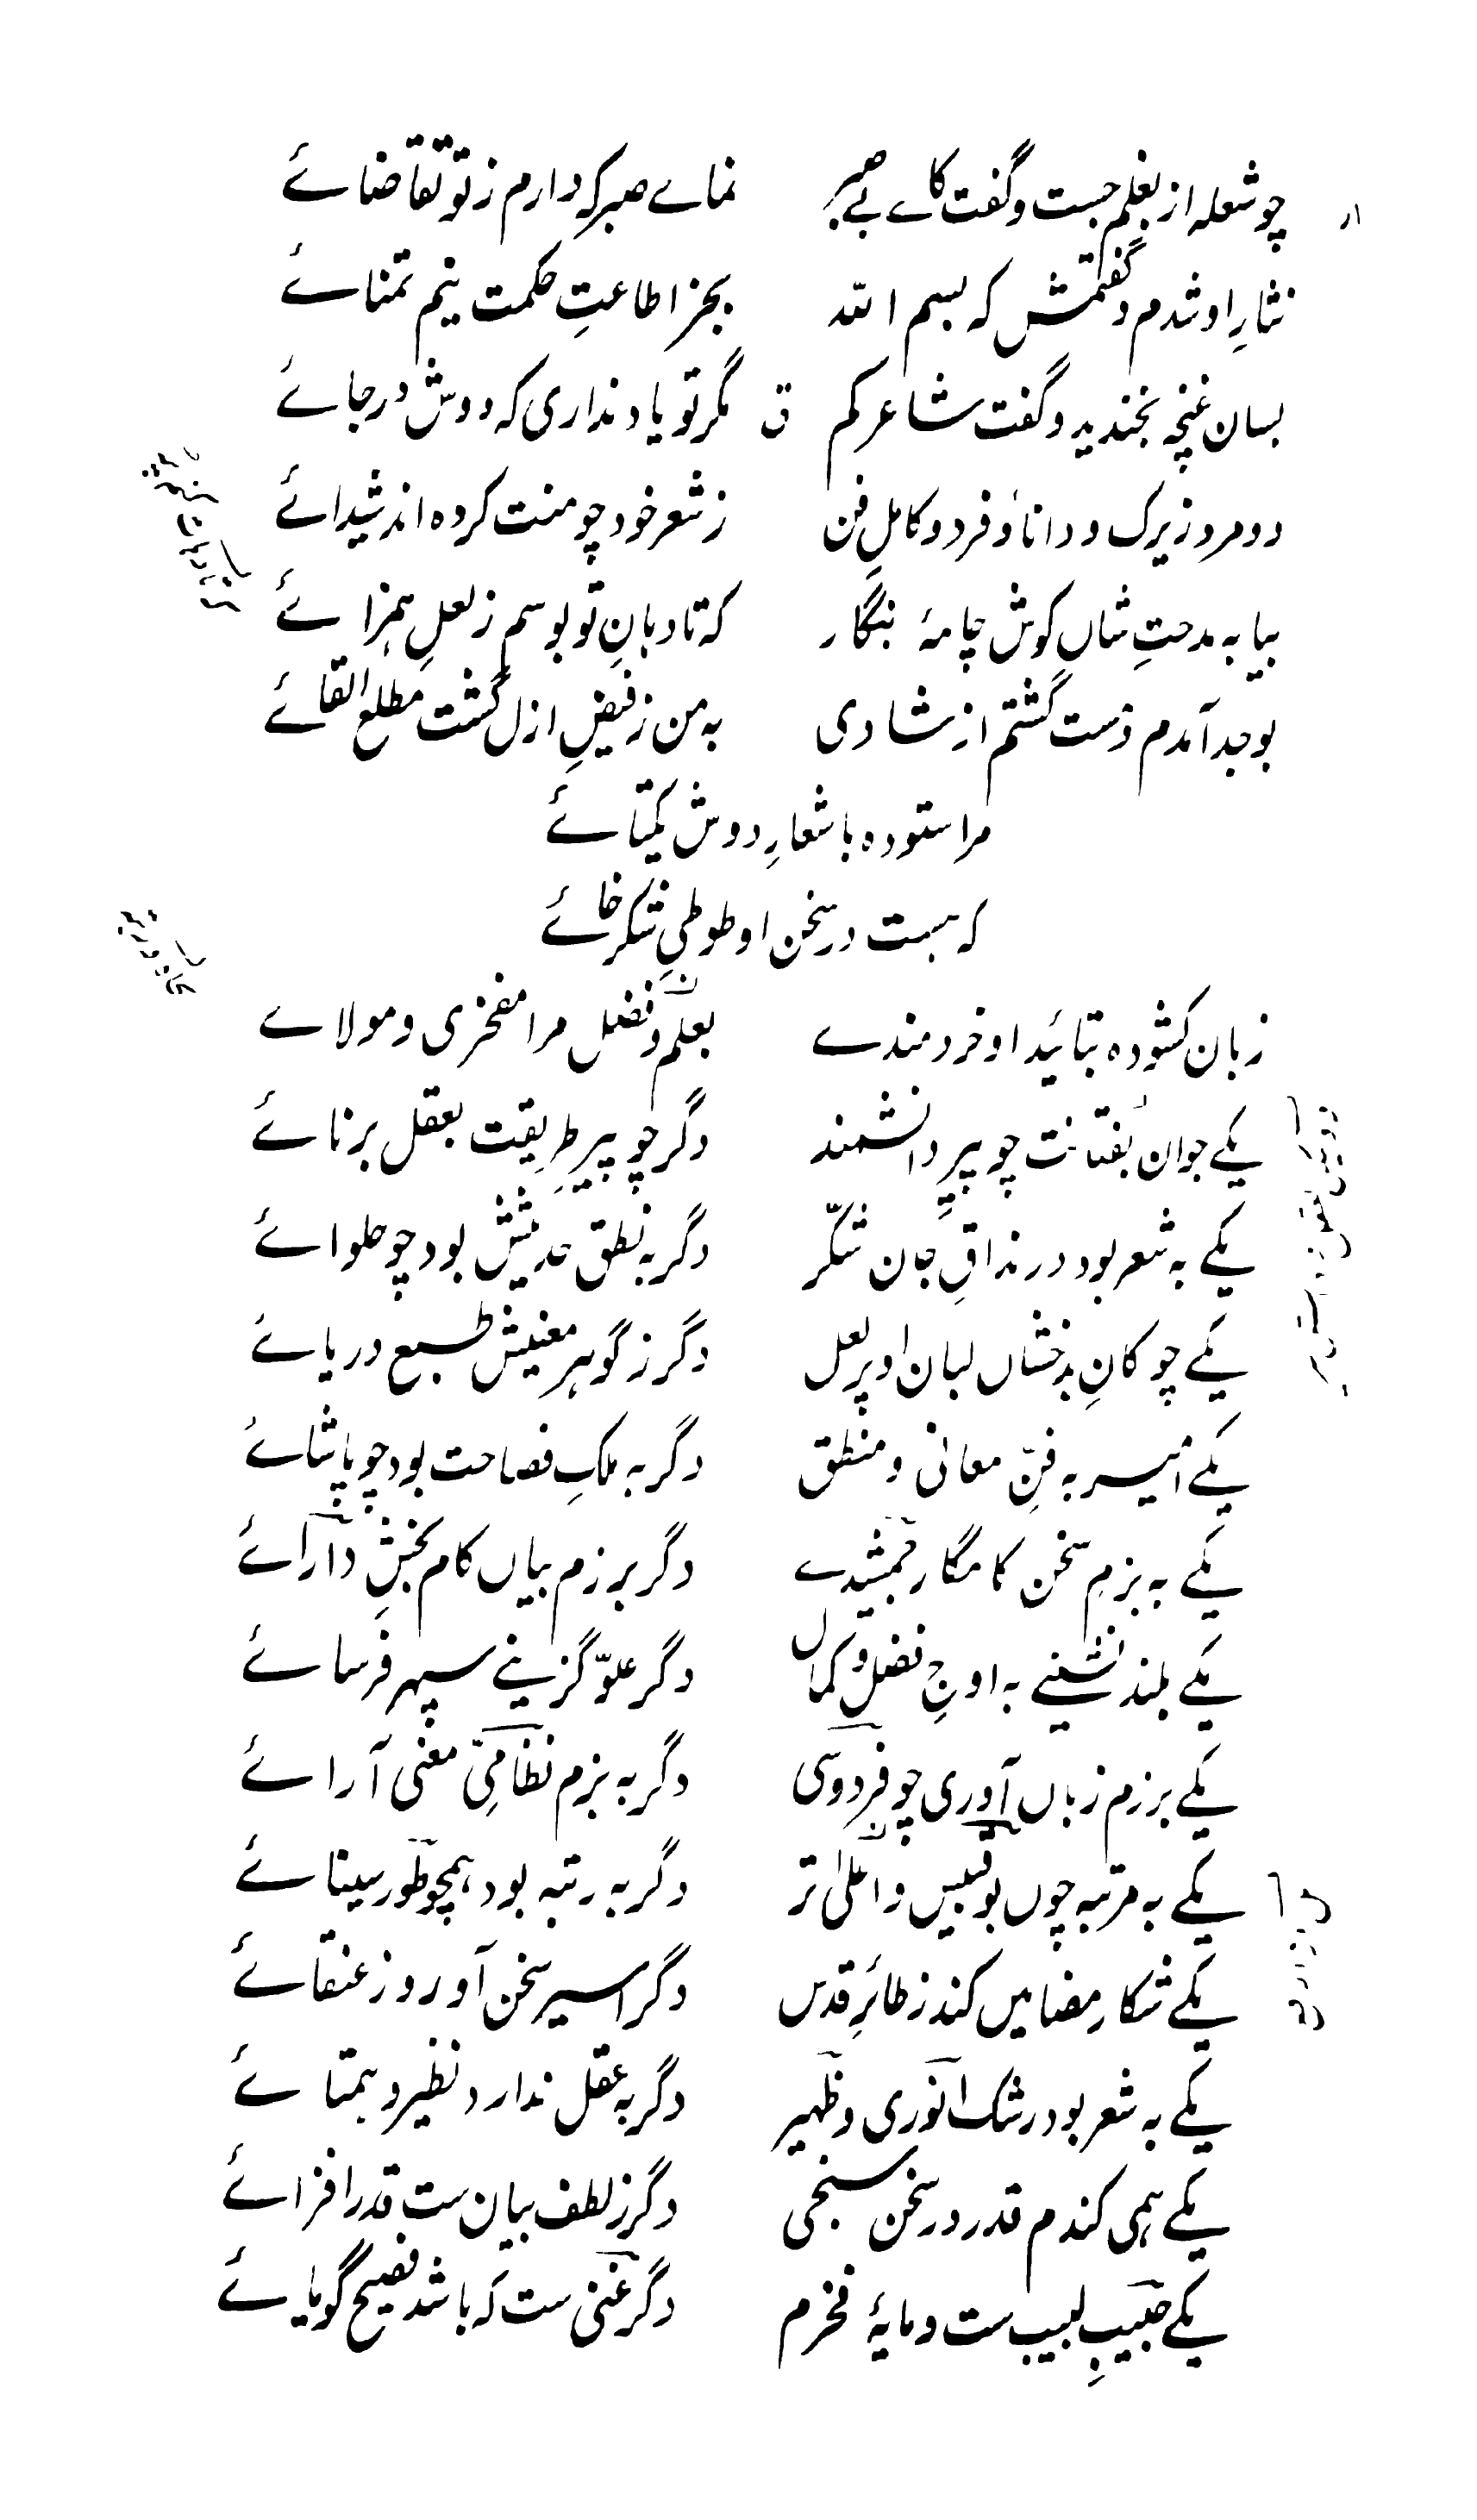 چو شعله از بغلم جست و گفت کاے بے نماے صبر که دارم ز تو تقاضائے
نثارِ او شدم و گفتمش که بسم الله بجز اطاعتِ حکمت نیم تمنائے
بسان غنچه بخندید و گفت شاعر کم ق مگر تو یاد نداری که دوش در جائے
دو مرد زیرک و دانا و فرد و کامل فن ز شعر خود چو منت کرده اند شیدائے
بیا به مدحتِ شاں کوش چامۂ بنگار که تا دهانِ تو بوسم ز لعلِ همزائے
بوجد آمدم و مست گشتم از شادی به من ز فیضِ ازل گشت مطلع القائے
مرا ستوده باشعارِ دوش یکتائے
که هست در سخن او طوطی شکرخائے
زبان کشوده بتائید او خردمندے بعلم و فضل مرا مفخری و مولاے
یکے جوان بفتانت چو پیرِ دانشمند دگر چو پیرِ طریقت بعقل برنائے
یکے به شعر بود در مذاقِ جان شکّر دگر به نطق حدیثش بود چو حلوائے
یکے چو کانِ بدخشاں لبان او پر لعل دگر ز گوهرِ معنیش طبع دریائے
یکے امیر به فنِّ معانی و منطق دگر به ملکِ فصاحت بود چو پاشائے
یکے به بزمِ سخن کامگار جمشیدے دگر برزم بیاں کام بخش دارائے
یکے بلند نشینے به اوجِ فضل و کمال دگر علوّ گزینے سپهر فرسائے
یکے برزم زباں آوری چو فردوسی دگر به بزم نظامیِّ معنی آرائے
یکے به مرتبه چوں بوقبیس و اعلیٰ تر دگر به رتبه بود، همچو طور سینائے
یکے شکار مضامیں کند ز طائرِ قدس دگر اسیر سخن آورد ز عنقائے
یکے به شعر بود رشک انوری و ظهیر دگر به عقل ندارد نظیر و همتائے
یکے همی کندم قدر در سخن سنجی دگر ز لطف بیان ست قدر افزائے
یکے حبیبِ لبیب ست و مایۂ فخرم دگر غنی ست که باشد فصیح گویائے